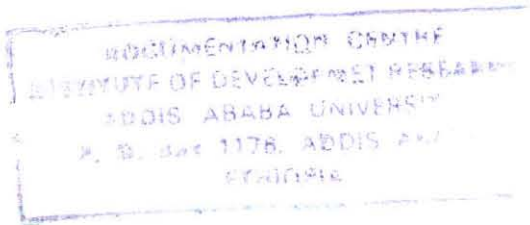 DOCUMENTATION CENTRE
INSTITUTE OF DEVELOPMENT RESEARCH
ADDIS ABABA UNIVERSITY
P. O. Box 1176, ADDIS
ETHIOPIA